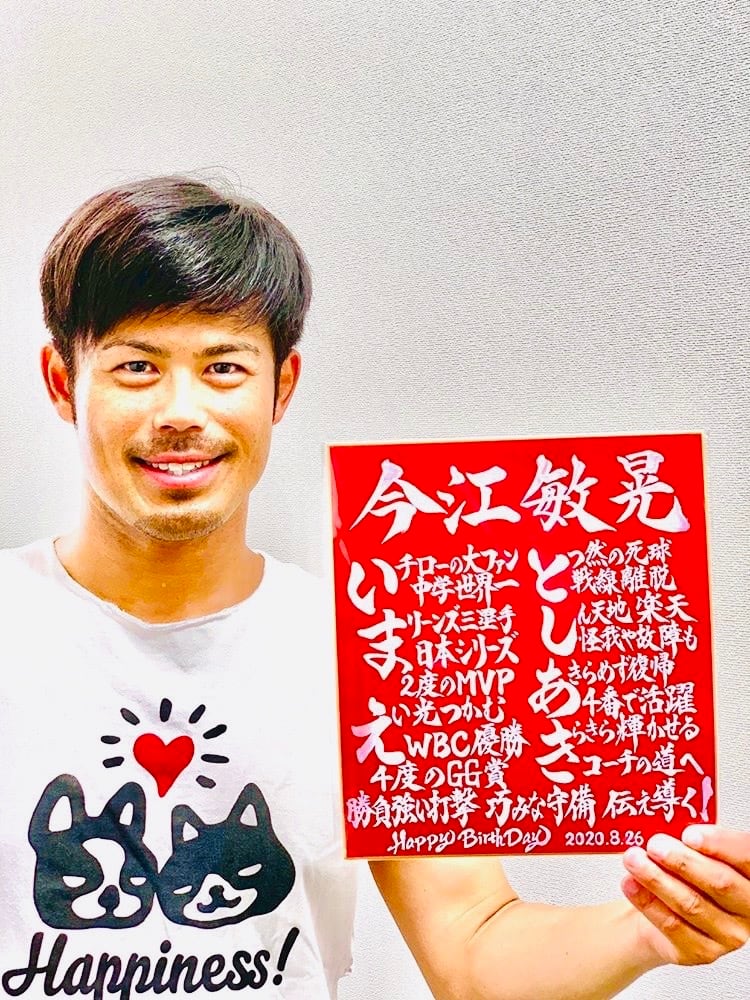 今江敏晃
いチローの大ファン
中学世界一
まリーンズ三塁手
日本シリーズ
2度のMVP
えい光つかむ
WBC優勝
4度のGG賞
とつ然の死球
戦線離脱
しん天地 楽天
怪我や故障も
あきらめず復帰
4番で活躍
きらきら輝かせる
コーチの道へ
勝負強い打撃 巧みな守備 伝え導く!
Happy BirthDay 2020.8.26
Happiness!